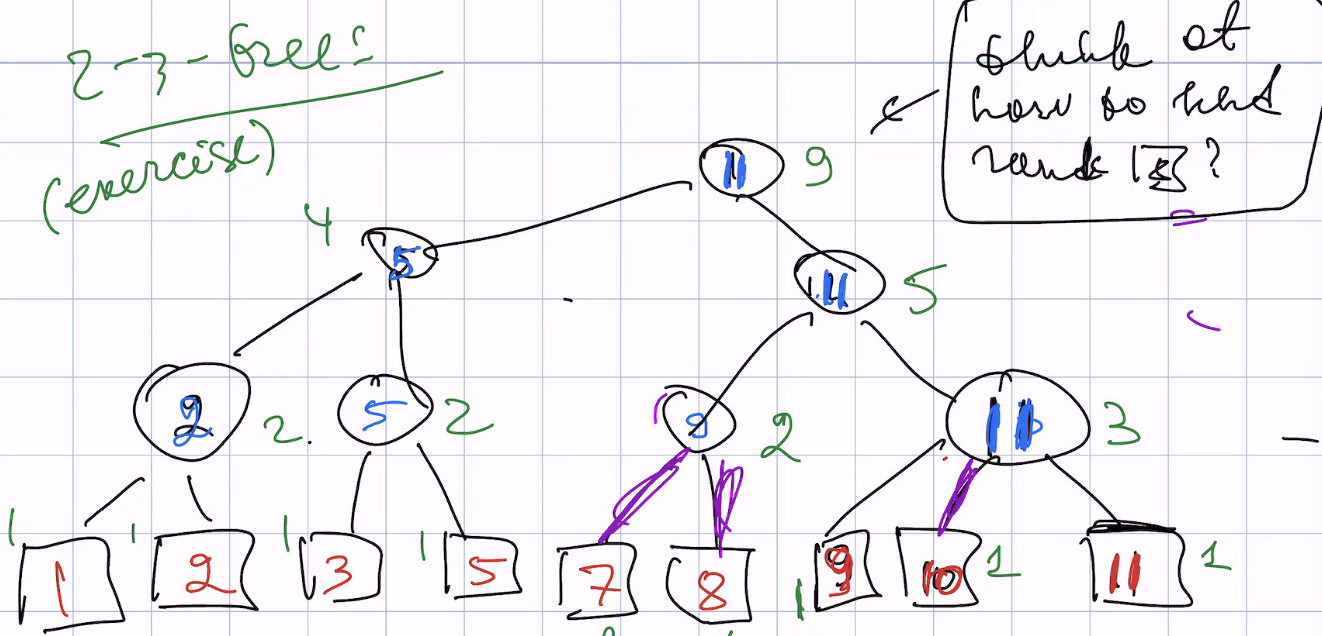 2-3-tree:
(exercise)
think of
how to find
rank
11 9
4 5
11 5
2 2. 5 2 2 11 3
1 1 1 1
1 2 3 5 7 8 9 10 1 11 1
1